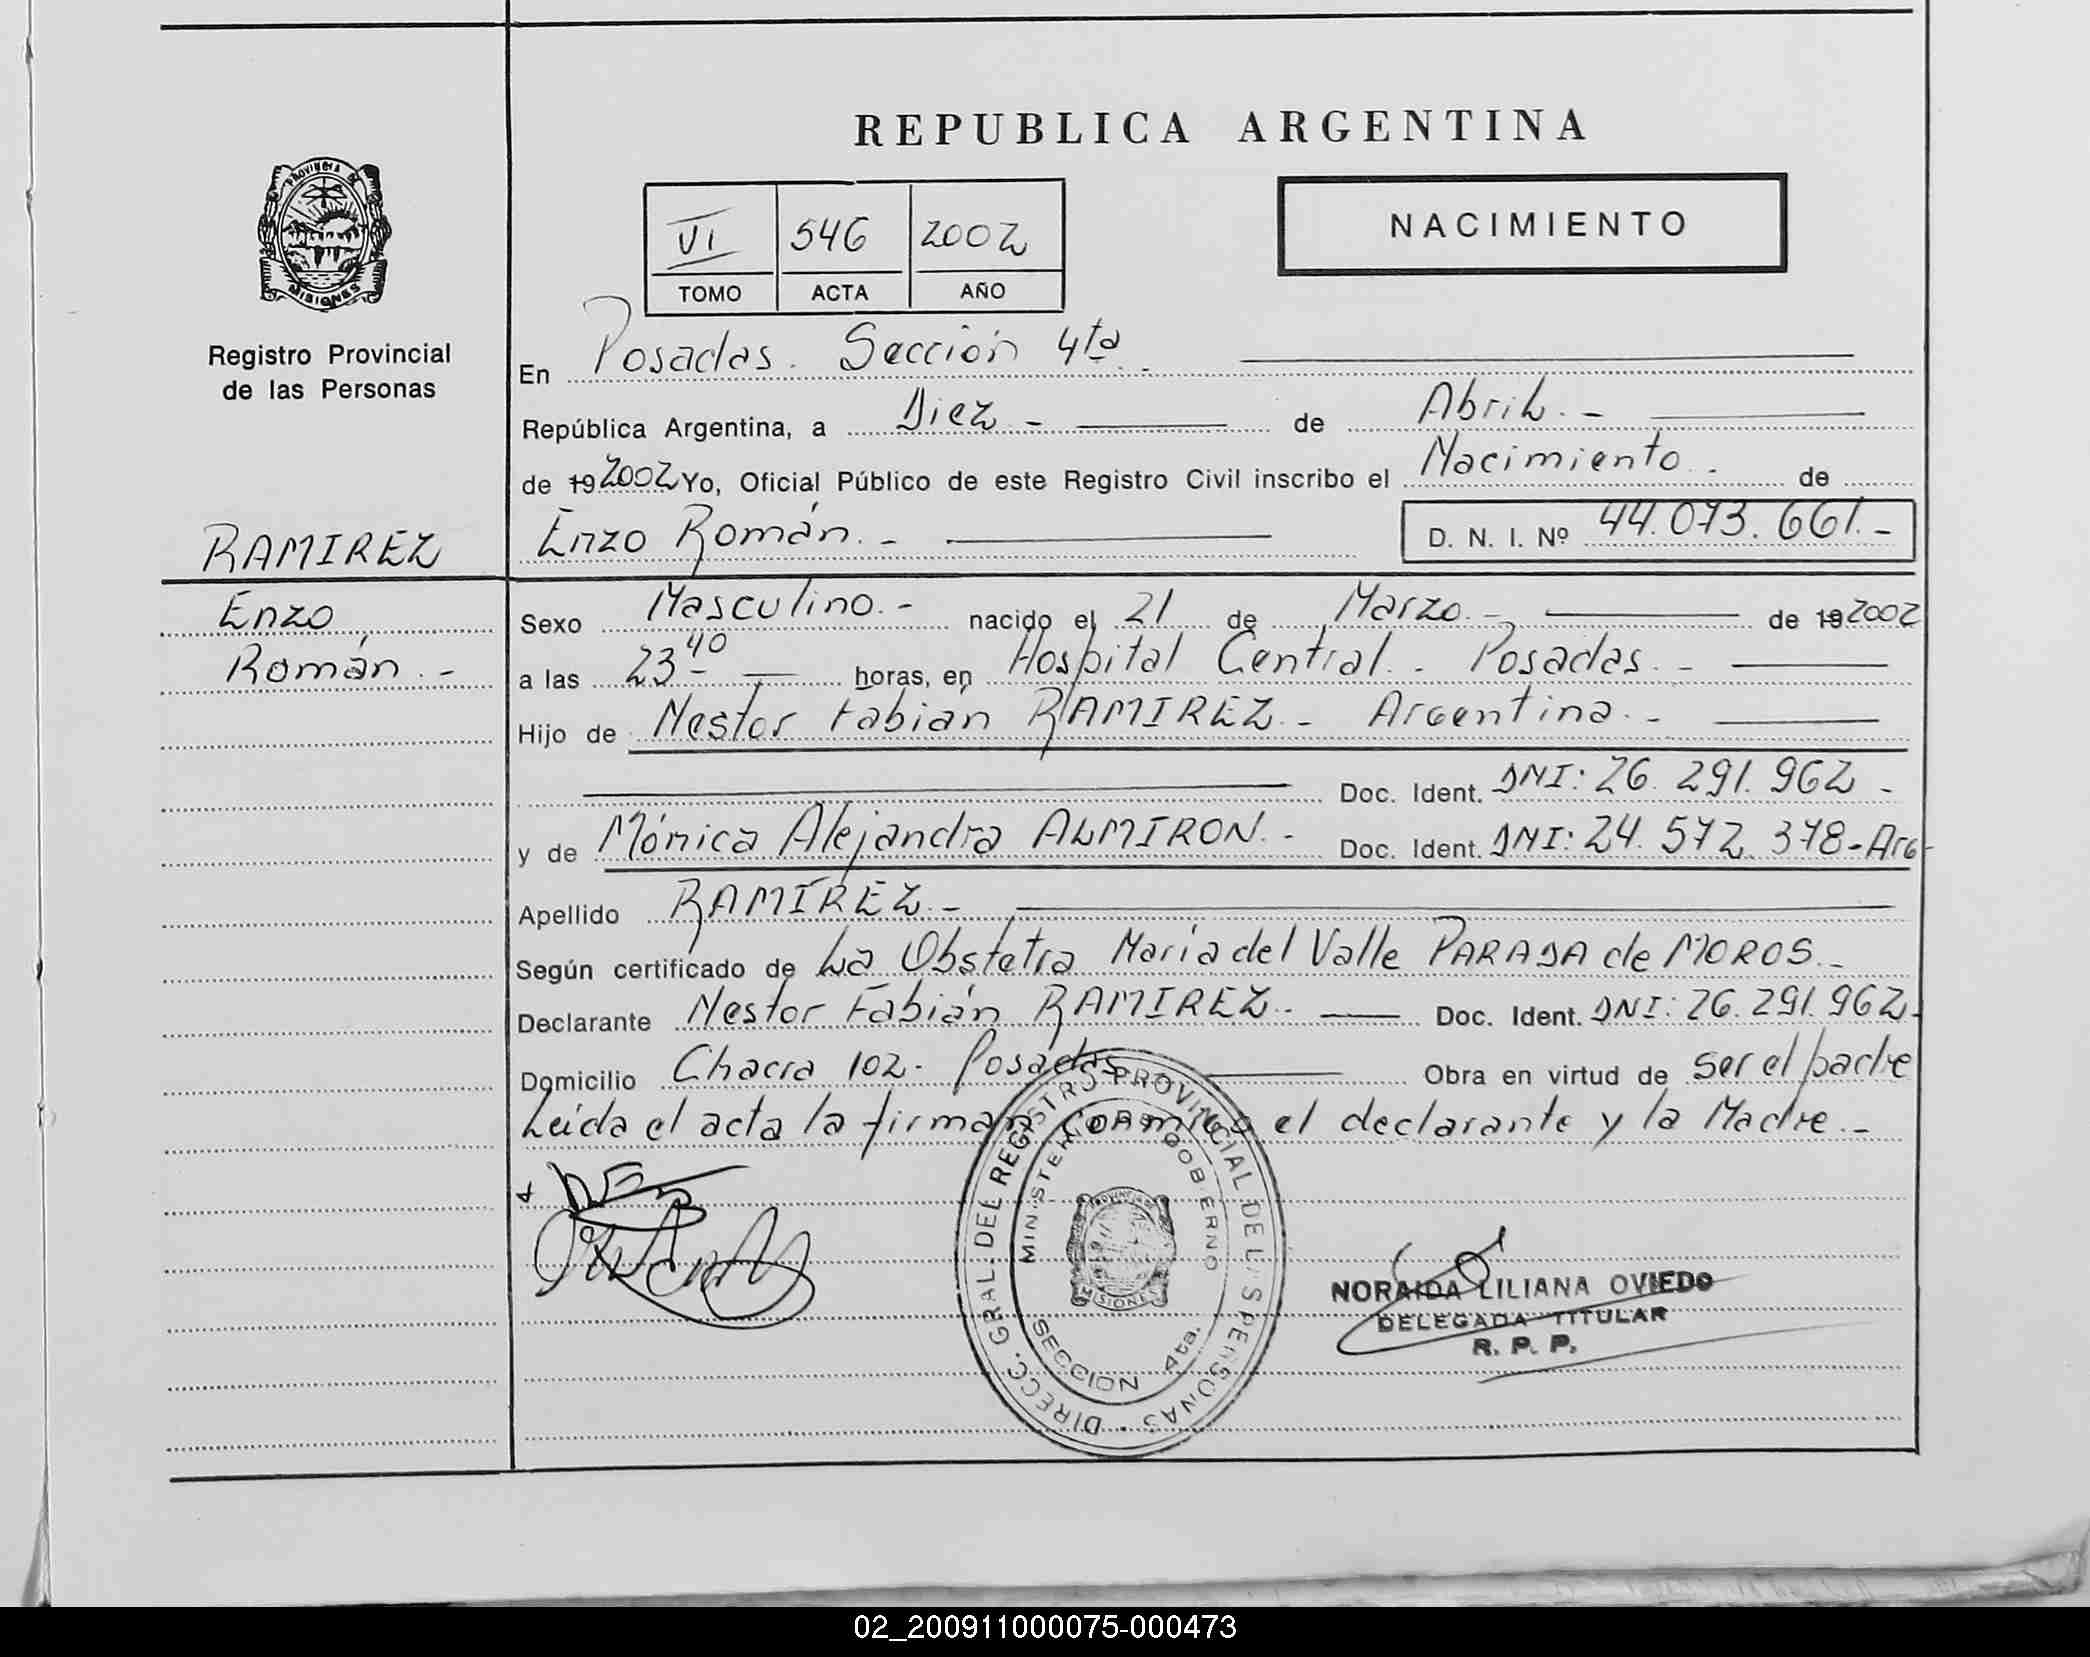 REPUBLICA ARGENTINA
NACIMIENTO
VI 546 2002
TOMO ACTA AÑO
PROVINCIA DE
MISIONES
Registro Provincial
de las Personas
En Posadas. Sección 4ta.
República Argentina, a Diez.- de Abril.-
de 192002 Yo, Oficial Público de este Registro Civil inscribo el Nacimiento. de
RAMIREZ
Enzo Román.- D. N. I. Nº 44.073.661.-
Enzo
Román.-
Sexo Masculino.- nacido el 21 de Marzo.- de 192002
a las 23 40 horas, en Hospital Central. Posadas.-
Hijo de Nestor Fabian RAMIREZ.- Argentina.-
Doc. Ident. DNI: 26.291.962-
y de Mónica Alejandra ALMIRON.- Doc. Ident. DNI: 24.572.378-Arg-
Apellido RAMIREZ.-
Según certificado de La Obstetra Maria del Valle PARADA de MOROS.-
Declarante Nestor Fabián RAMIREZ.- Doc. Ident. DNI: 26.291.962-
Domicilio Chacra 102- Posadas Obra en virtud de ser el padre
Leida el acta la firman conmigo el declarante y la Madre.-
DIRECC. GRAL. DEL REGISTRO PROVINCIAL DE LAS PERSONAS
MINISTERIO DE GOBIERNO
MISIONES
SECCION 4ta.
NORAIDA LILIANA OVIEDO
DELEGADA TITULAR
R. P. P.
02_200911000075-000473